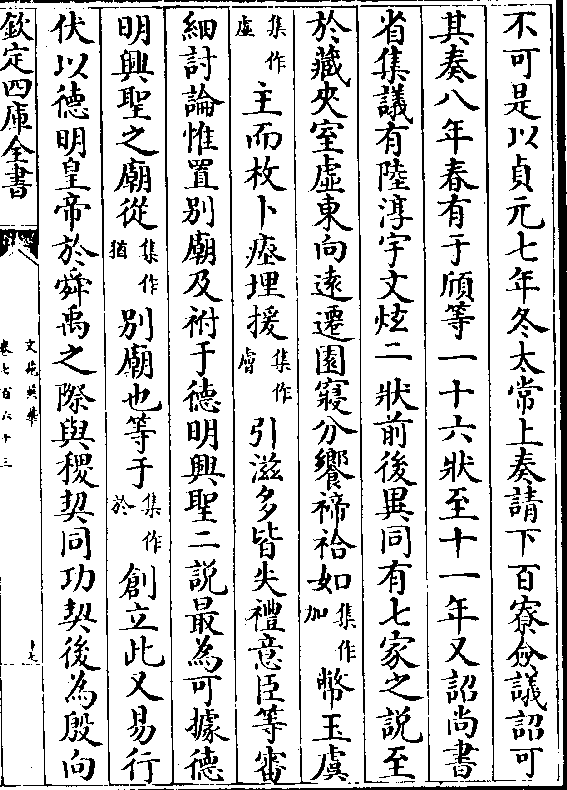 不可是以貞元七年冬太常上奏請下百寮僉議詔可
其奏八年春有于頎等一十六狀至十一年又詔尚書
省集議有陸淳宇文炫二狀前後異同有七家之說至
於藏夾室虛東向遠遷園寢分饗禘祫如集作加幣玉虞
集作虛主而枚卜瘞埋援集作膚引滋多皆失禮意臣等審
細討論惟置别廟及祔于德明興聖二說最為可據德
明興聖之廟從集作猶别廟也等于集作於創立此又易行
伏以德明皇帝於舜禹之際與稷契同功契後為殷向
欽定四庫全書
文苑英華
卷七百六十三
十七